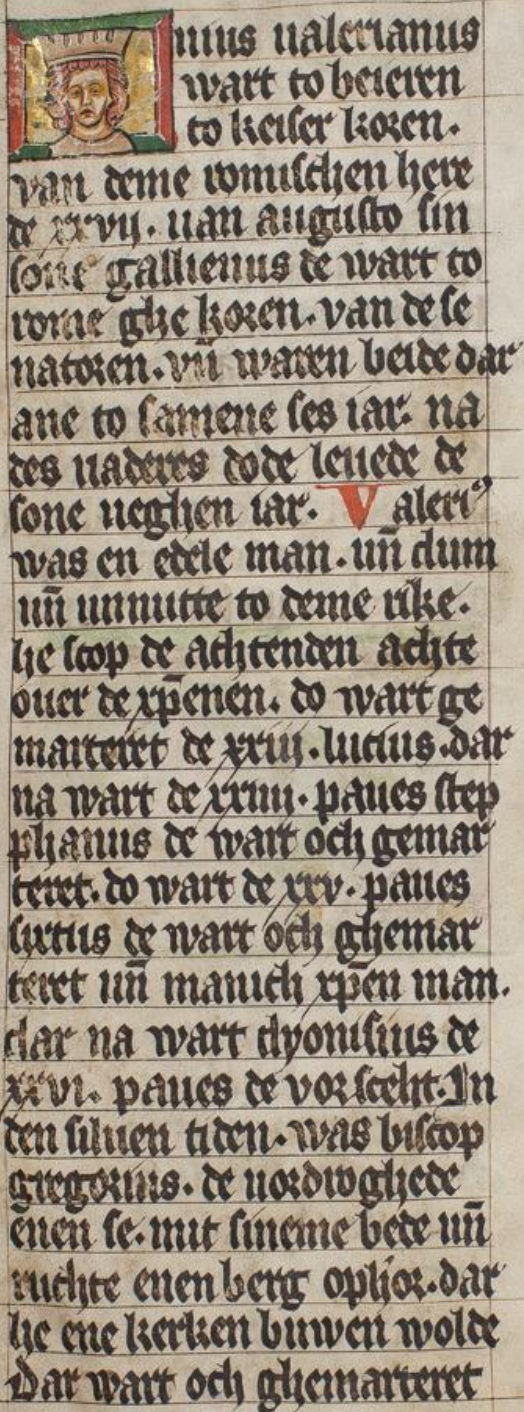 nius ualerianus
wart to beieren
to keiser koren.
van deme romischen here
de xxvii. uan augusto sin
sone gallienus de wart to
rome ghe koren. van de se
natoren. vn̄ waren beide dar
ane to samene ses iar. na
des uaderes dode leuede de
sone neghen iar. Valeri⁹
was en edele man. un̄ dum
un̄ unnutte to deme rike.
he scop de achtenden achte
ouer de xp̄enen. do wart ge
marteret de xxiii. lucius. dar
na wart de xxiiii. paues step
phanus de wart och gemar
teret. do wart de xxv. paues
sixtus de wart och ghemar
teret un̄ manich xp̄en man.
dar na wart dyonisius de
xxvi. paues de vor steht. In
den siluen tiden. was biscop
gregorius. de uordroghede
enen se. mit sineme bede un̄
ruchte enen berg ophor. dar
he ene kerken buwen wolde
Dar wart och ghemarteret